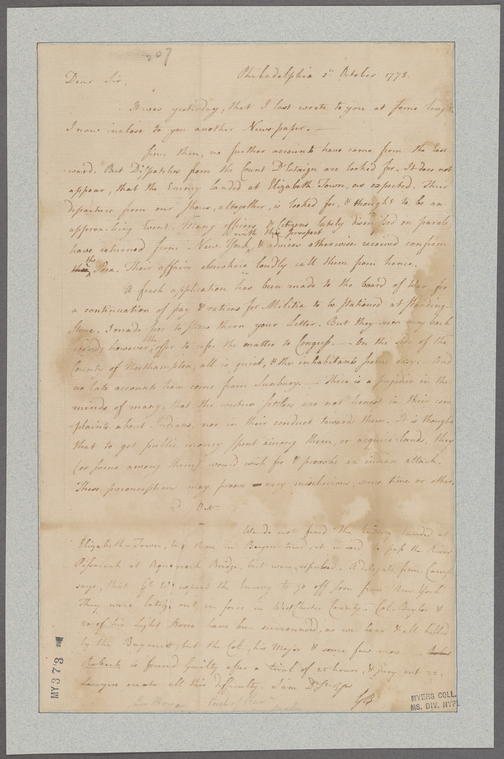 207
Philadelphia 2d October 1778.
Dear Sir,
It was yesterday, that I last wrote to you at some length
I now inclose to you another News paper.
Since then, no further accounts have come from the East
ward. But Dispatches from the Count D'Estaign are looked for. It does not
appear, that the Enemy landed at Elizabeth Town, as expected. Their
departure from our Shore, altogether, is looked for, & thought to be an
approaching Event. Many officers & Citizens lately dismissed on parole
with this prospect
have returned from New York, & advices otherwise received confirm
the
Idea. Their affairs elsewhere loudly call them from hence.
A fresh application has been made to the board of War for
a continuation of pay & rations for Militia to be stationed at Standing
Stone. I made use to them your Letter. But they were very back
ward; however, offer to refer the matter to Congress. On the side of the
County of Northampton, all is quiet, & the inhabitants from
no late accounts have come from Sunbury. There is a prejudice in the
minds of many, that the western settlers are not honest in their com
plaints about Indians, nor in their conduct toward them. It is thought
that to get public money spent among them, or acquire lands, they
(or some among them) would wish for & provoke an indian attack.
These preconceptions may prove very mischievous, some time or other.
3 Oct
We do not find the Enemy landed at
Elizabeth Town, but those in Bergen tried to pass the River
Passaick at Aquaquack Bridge, but were repulsed. A delegate from Camp
says, that Gl. W. expects the Enemy to go off soon from New York
They were lately out in force in West Chester County. Col. Baylor &
of his Light Horse have been surrounded, as we hear & all killed
by the Bayonet, but the Col., his Major & some few more.
is found guilty after a trial of 25 hours, & jury out
Lawyers made all this difficulty. I am Dr Sir
GB
MY373
MYERS COLL.
MS. DIV. NYPL